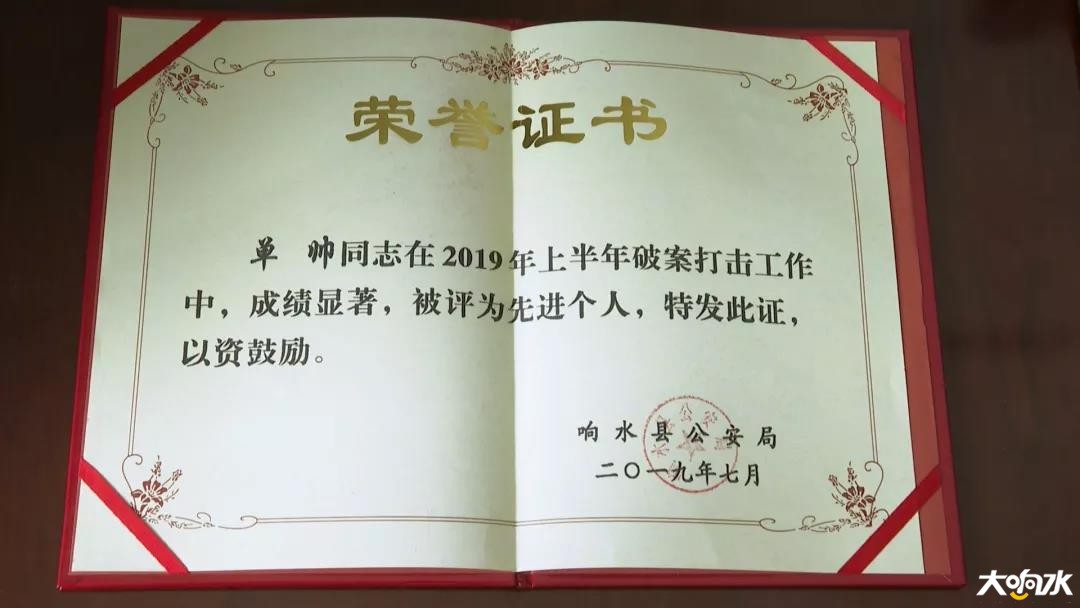 荣誉证书
单 帅同志在2019年上半年破案打击工作
中，成绩显著，被评为先进个人，特发此证，
以资鼓励。
响水县公安局
二〇一九年七月
大响水